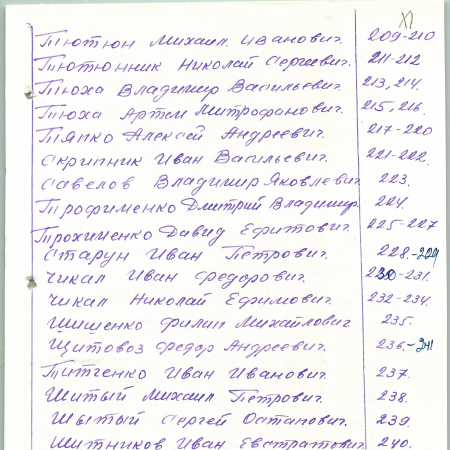 XI
Тютюн Михаил Иванович. 209-210
Тютюнник Николай Сергеевич. 211-212
Тюха Владимир Васильевич. 213, 214.
Тюха Артем Митрофанович. 215, 216.
Тяпко Алексей Андреевич. 217-220
Скрипник Иван Васильевич. 221-222.
Савелов Владимир Яковлевич 223.
Трофименко Дмитрий Владимир. 224.
Трохименко Давид Ефитович. 225-227
Старун Иван Петрович. 228.-229
Чикал Иван Федорович. 230-231.
Чикал Николай Ефимович. 232-234.
Шишенко Филип Михайлович 235.
Щитовоз Федор Андреевич. 236.-241
Титченко Иван Иванович. 237.
Шитый Михаил Петрович. 238.
Шытый Сергей Остапович. 239.
Шитников Иван Евстратович 240.